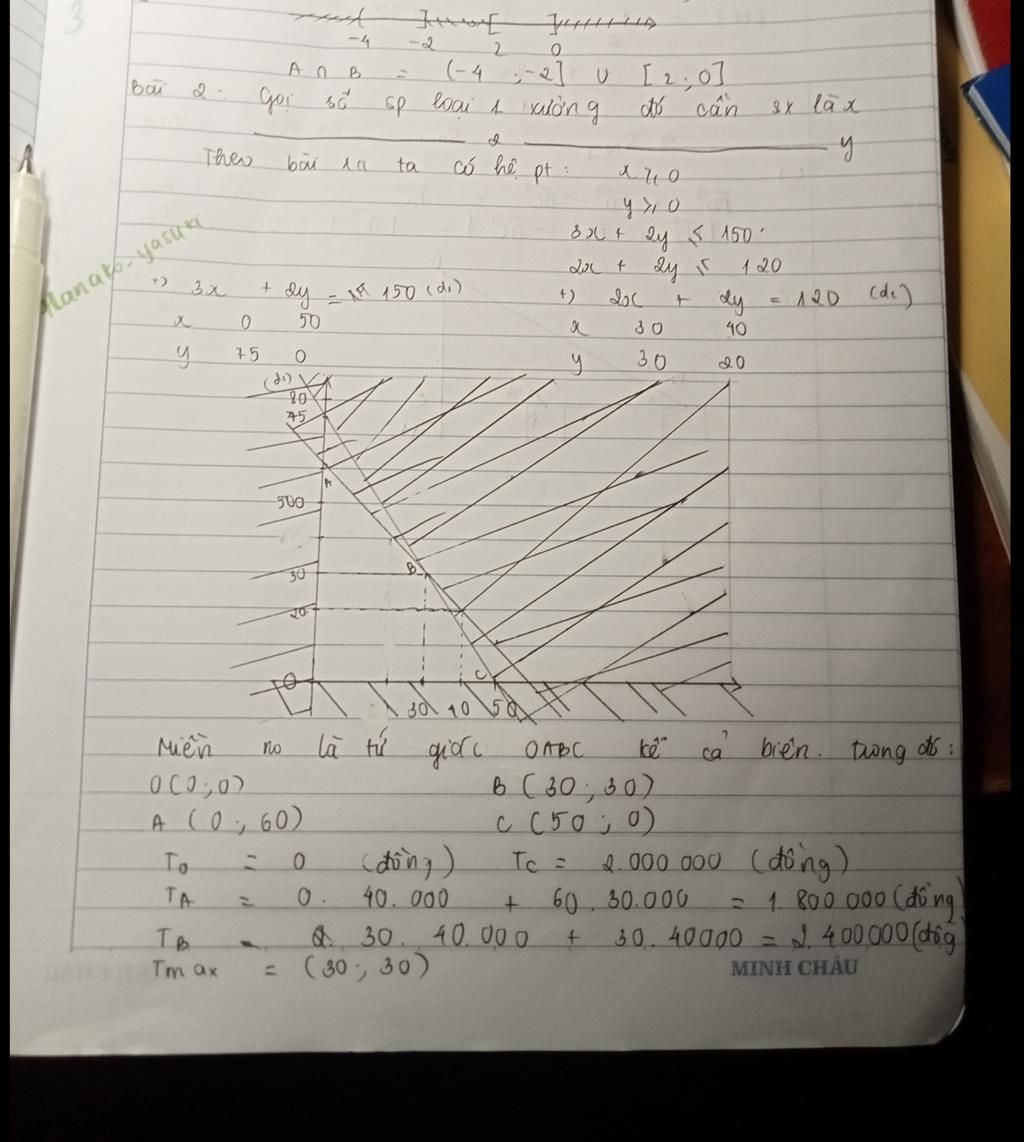 3
-4 -2 2 0
A ∩ B = (-4 ; -2] ∪ [2 ; 0]
Bài 2: Gọi số sp loại 1 xưởng đó cần sx là x
2 y
Theo bài ra ta có hệ pt: x ≥ 0
y ≥ 0
3x + 2y ≤ 150
2x + 2y ≤ 120
Hanako-yasuki
+) 3x + 2y = 150 (d₁) +) 2x + 2y = 120 (d₂)
x 0 50 x 30 40
y 75 0 y 30 20
(d₁)
80
75
A
500
30 B
20
O C
30 40 50
Miền no là tứ giác OABC kể cả biên. trong đó:
O(0;0) B (30; 30)
A (0; 60) C (50; 0)
T₀ = 0 (đồng) Tc = 2.000 000 (đồng)
TA = 0. 40.000 + 60.30.000 = 1.800 000 (đồng)
TB = 30. 40.000 + 30.40000 = 2.400.000 (đồg
Tmax = (30; 30)
MINH CHÂU